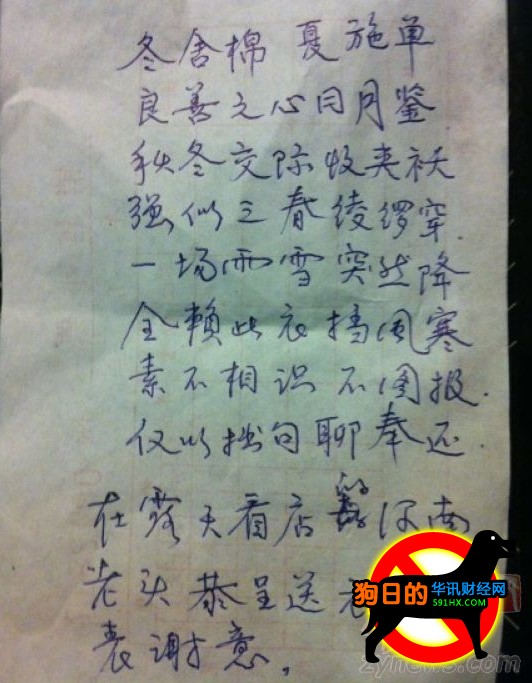 冬舍棉 夏施单
良善之心日月鉴
秋冬交际收夹袄
强似三春绫缪穿.
一场雨雪突然降
全赖此衣挡风寒
素不相识不图报.
仅以拙句聊奉还.
在露天看店的河南
老头恭呈送
表谢意。
狗日的 华讯财经网
591HX.COM
zynews.com